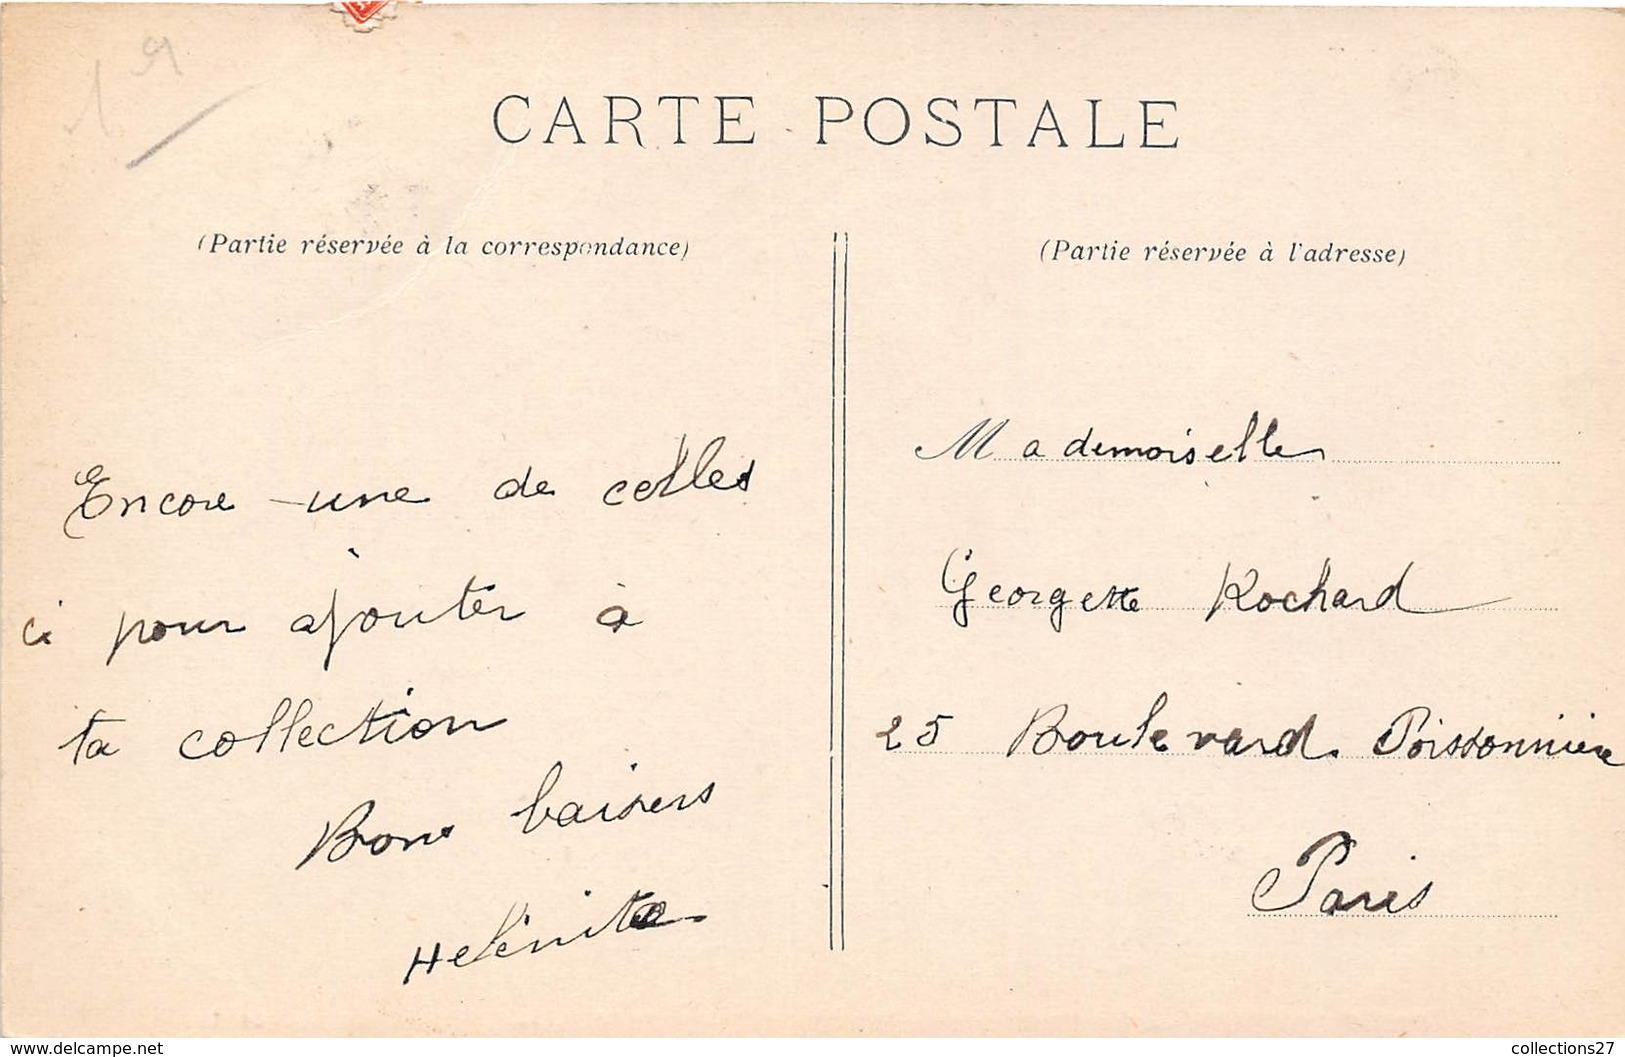 CARTE POSTALE
(Partie réservée à la correspondance)
Encore une de celles
ci pour ajouter à
ta collection
Bons baisers
Helénita
(Partie réservée à l'adresse)
Mademoiselle
Georgette Rochard
25 Boulevard Poissonnière
Paris
www.delcampe.net
collections27